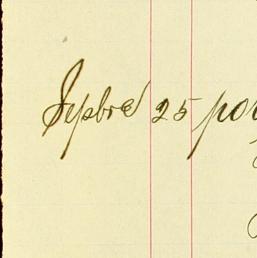 Sepbre 25 por